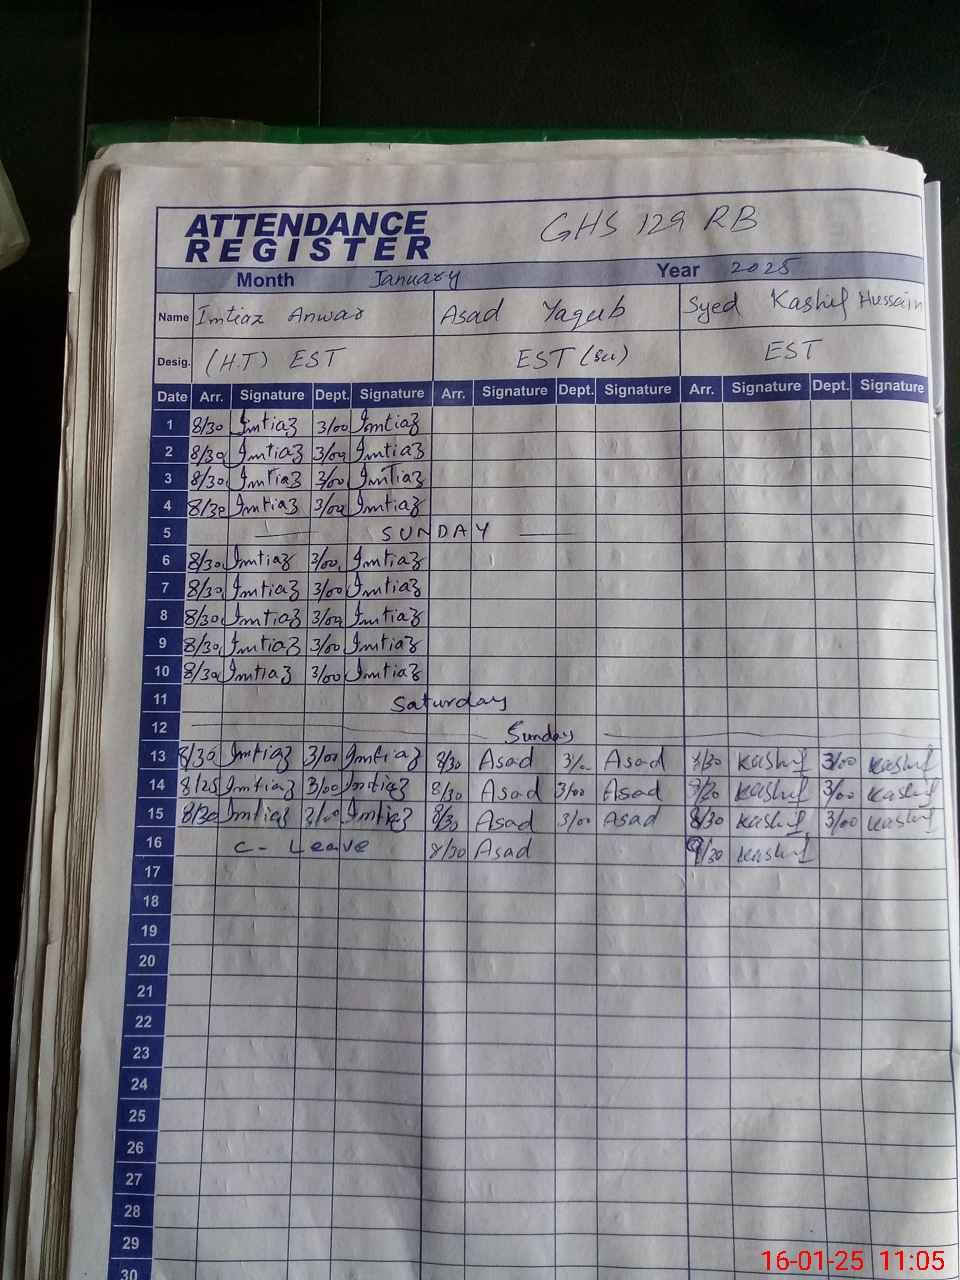 ATTENDANCE
REGISTER
GHS 129 RB
Month January Year 2025
Name Imtiaz Anwar Asad Yaqub Syed Kashif Hussain
Desig. (H.T) EST EST (sci) EST
Date Arr. Signature Dept. Signature Arr. Signature Dept. Signature Arr. Signature Dept. Signature
1 8/30 Imtiaz 3/00 Imtiaz
2 8/30 Imtiaz 3/00 Imtiaz
3 8/30 Imtiaz 3/00 Imtiaz
4 8/30 Imtiaz 3/00 Imtiaz
5 SUNDAY
6 8/30 Imtiaz 3/00 Imtiaz
7 8/30 Imtiaz 3/00 Imtiaz
8 8/30 Imtiaz 3/00 Imtiaz
9 8/30 Imtiaz 3/00 Imtiaz
10 8/30 Imtiaz 3/00 Imtiaz
11 Saturday
12 Sunday
13 8/30 Imtiaz 3/00 Imtiaz 8/30 Asad 3/00 Asad 8/30 Kashif 3/00 Kashif
14 8/25 Imtiaz 3/00 Imtiaz 8/30 Asad 3/00 Asad 8/30 Kashif 3/00 Kashif
15 8/30 Imtiaz 3/00 Imtiaz 8/30 Asad 3/00 Asad 8/30 Kashif 3/00 Kashif
16 C- Leave 8/30 Asad /30 Kashif
17
18
19
20
21
22
23
24
25
26
27
28
29
30
16-01-25 11:05